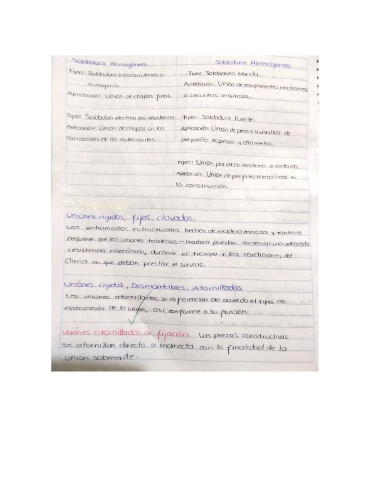 Soldadura Homogénea
Soldadura Heterogénea
Tipo: Soldadura
autógena
Aplicación: Unión de chapas finas
Tipo: Soldadura blanda
Aplicación: Unión de componentes electrónicos
a circuitos impresos.
Tipo: Soldadura eléctrica por resistencia
Aplicación: Unión de chapas en las
carrocerías de los automóviles.
Tipo: Soldadura fuerte.
Aplicación: Unión de piezas o varillas de
pequeño espesor y diámetro.
Tipo: Unión por arco eléctrico o voltaico
Aplicación: Unión de perfiles metálicos en
la construcción.
Uniones rígidas, fijas, clavadas.
Los entramados estructurales hechos de madera maciza y tableros
requieren que las uniones tableros - madera puedan una adecuada
resistencia mecánica, durante el tiempo y las condiciones del
clima en que deban prestar el servicio.
Uniones rígidas, Desmontables, Atornilladas.
Las uniones atornilladas se diferencian de acuerdo al tipo de
elaboración de la unión, así conforme a su función.
Uniones atornilladas en fijación. Las piezas constructivas
se atornillan directa o indirecta con la finalidad de la
unión solamente.